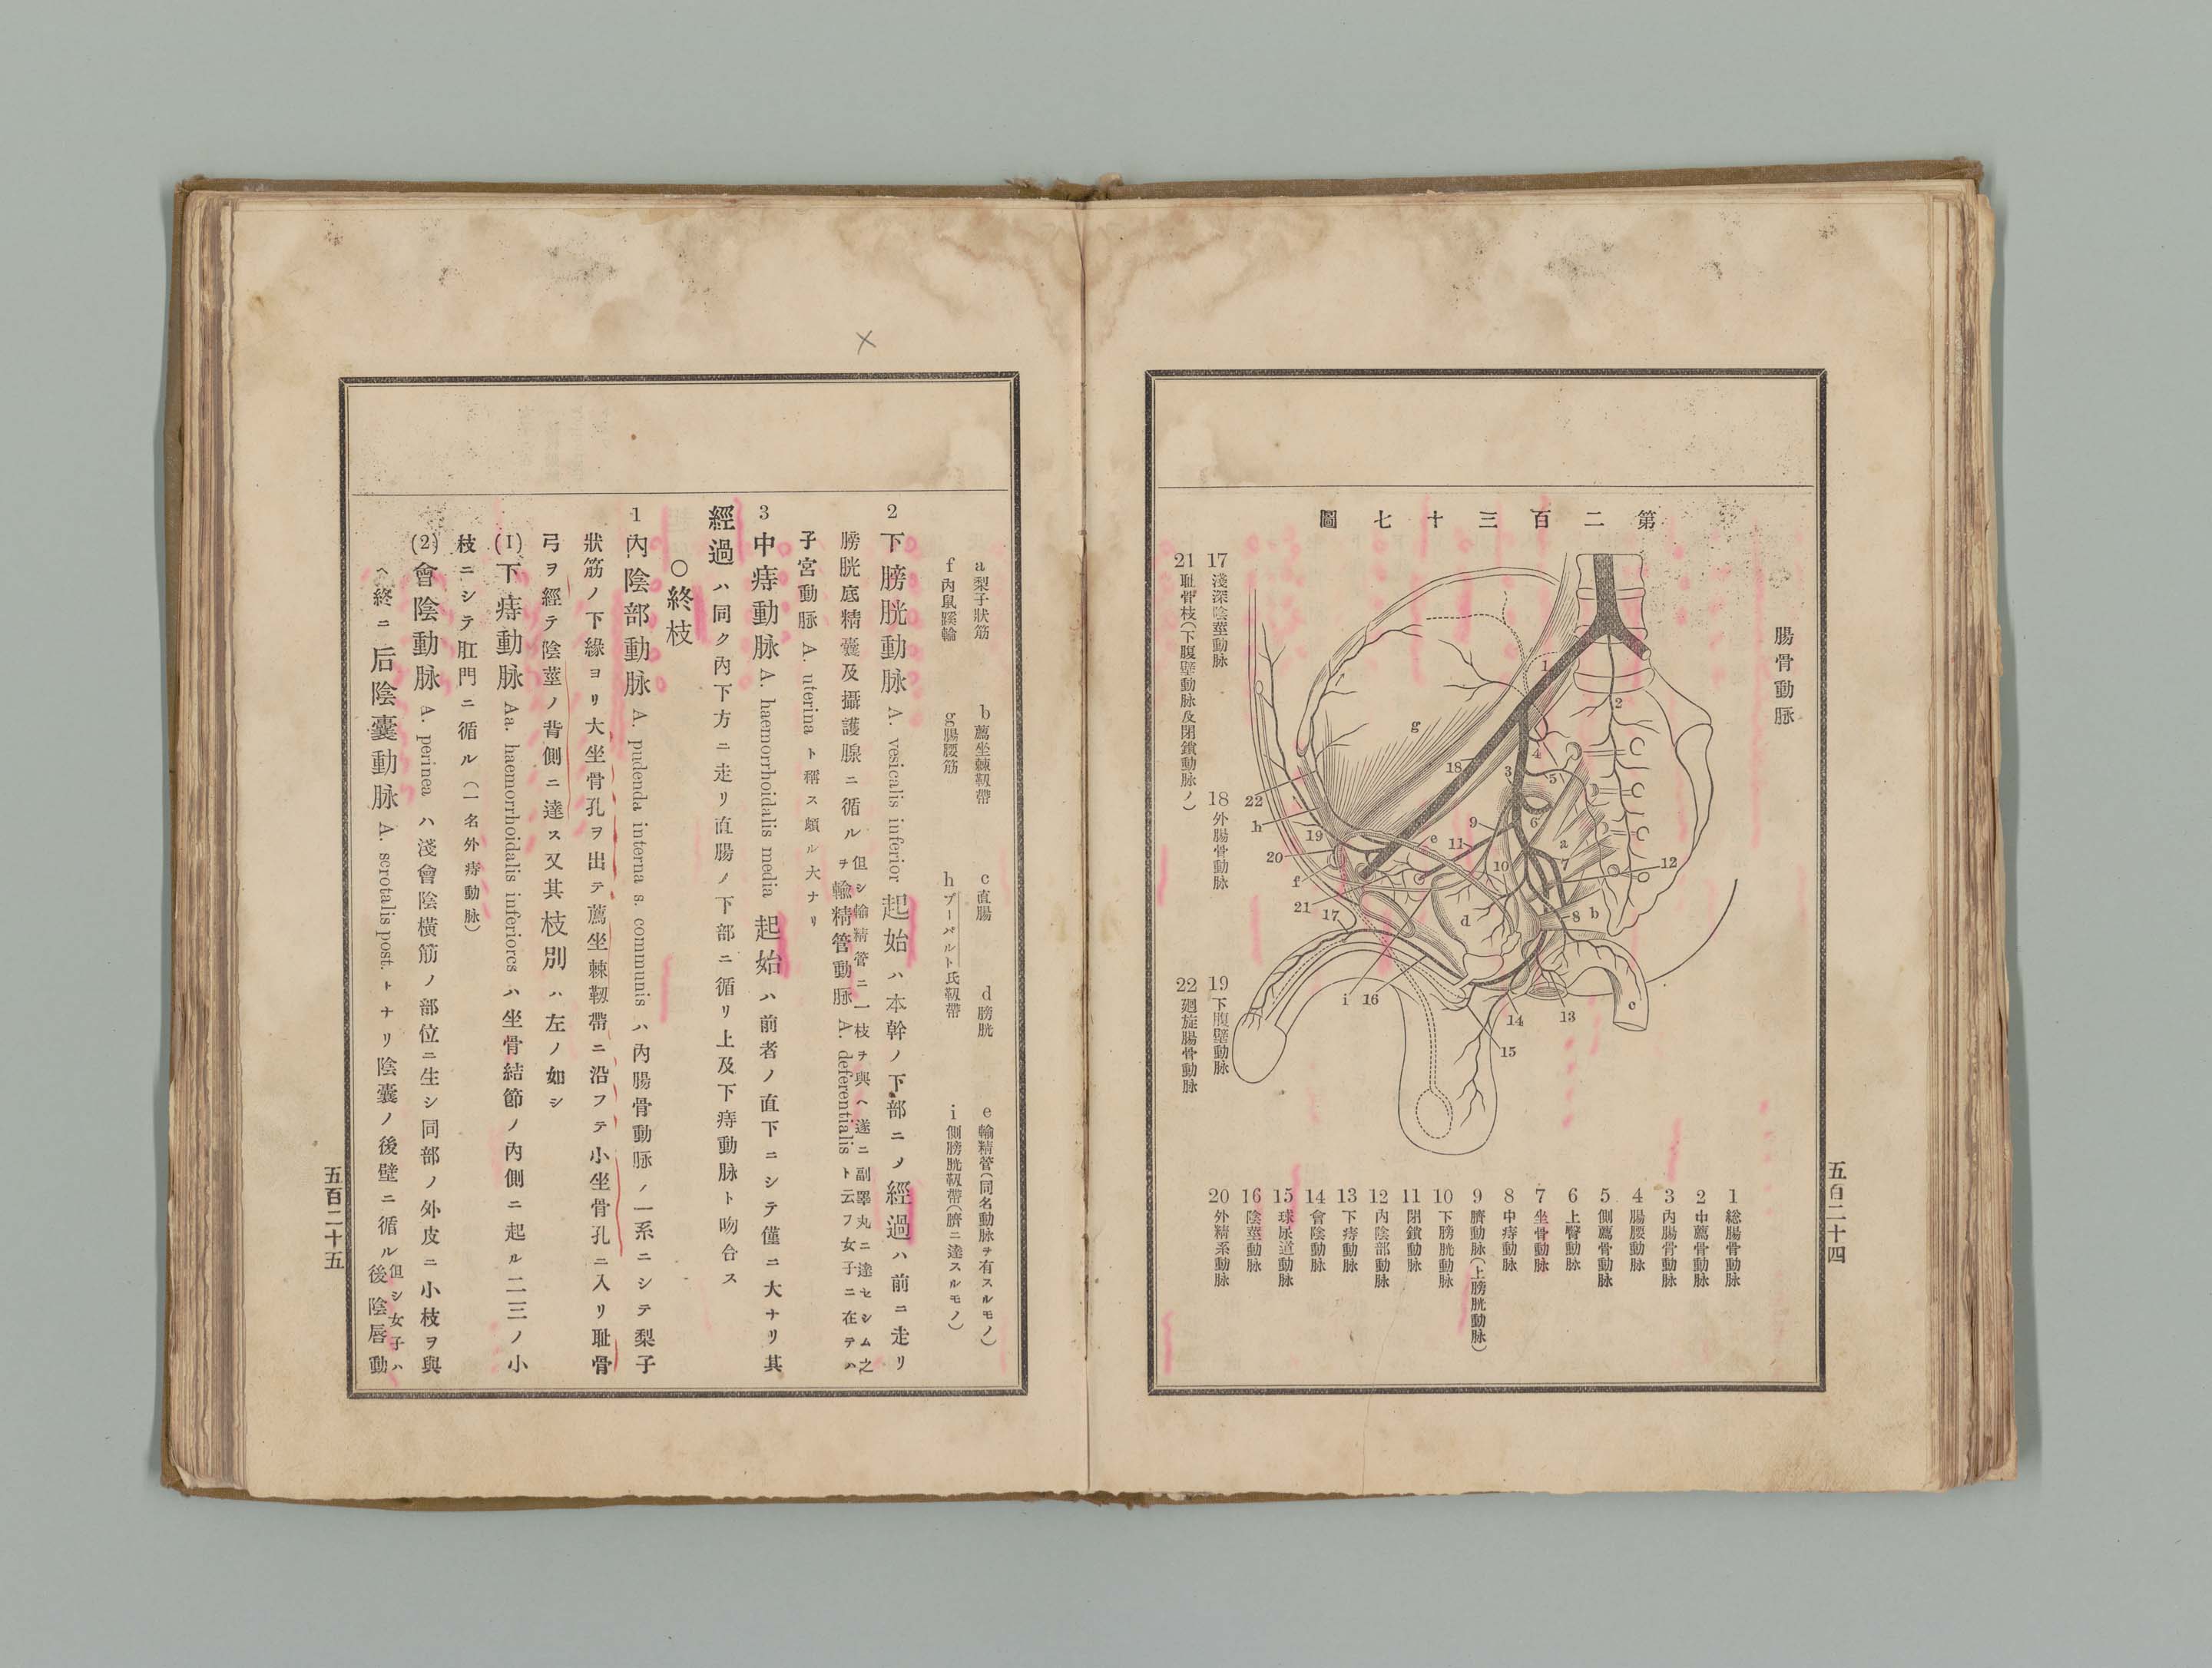 腸骨動脉
第二百三十七圖
1
2
3
4
5
6
7
8
9
10
11
12
13
14
15
16
17
18
19
20
21
22
a
b
c
d
e
f
g
h
i
1 総腸骨動脉
2 中薦骨動脉
3 內腸骨動脉
4 腸腰動脉
5 側薦骨動脉
6 上臀動脉
7 坐骨動脉
8 中痔動脉
9 臍動脉(上膀胱動脉)
10 下膀胱動脉
11 閉鎖動脉
12 內陰部動脉
13 下痔動脉
14 會陰動脉
15 球尿道動脉
16 陰莖動脉
20 外精系動脉
17 淺深陰莖動脉
18 外腸骨動脉
19 下腹壁動脉
21 耻骨枝(下腹壁動脉及閉鎖動脉ノ)
22 廻旋腸骨動脉
五百二十四
a 梨子狀筋
b 薦坐棘靱帶
c 直腸
d 膀胱
e 輸精管(同名動脉ヲ有スルモノ)
f 內鼠蹊輪
g 腸腰筋
h プーパルト氏靱帶
i 側膀胱靱帶(臍ニ達スルモノ)
2 下膀胱動脉 A. vesicalis inferior 起始ハ本幹ノ下部ニノ經過ハ前ニ走リ
膀胱底精囊及攝護腺ニ循ル 但シ輸精管ニ一枝ヲ與ヘ遂ニ副睪丸ニ達セシム之
ヲ輸精管動脉 A. deferentialis ト云フ女子ニ在テハ
子宮動脉 A. uterina ト稱ス頗ル大ナリ
3 中痔動脉 A. haemorrhoidalis media 起始ハ前者ノ直下ニシテ僅ニ大ナリ其
經過ハ同ク內下方ニ走リ直腸ノ下部ニ循リ上及下痔動脉ト吻合ス
○終枝
1 內陰部動脉 A. pudenda interna s. communis ハ內腸骨動脉ノ一系ニシテ梨子
狀筋ノ下緣ヨリ大坐骨孔ヲ出テ薦坐棘靱帶ニ沿フテ小坐骨孔ニ入リ耻骨
弓ヲ經テ陰莖ノ背側ニ達ス又其枝別ハ左ノ如シ
(1) 下痔動脉 Aa. haemorrhoidalis inferiores ハ坐骨結節ノ內側ニ起ル二三ノ小
枝ニシテ肛門ニ循ル(一名外痔動脉)
(2) 會陰動脉 A. perinea ハ淺會陰橫筋ノ部位ニ生シ同部ノ外皮ニ小枝ヲ與
ヘ終ニ后陰囊動脉 A. scrotalis post. トナリ陰囊ノ後壁ニ循ル 但シ女子ハ
後陰唇動
五百二十五